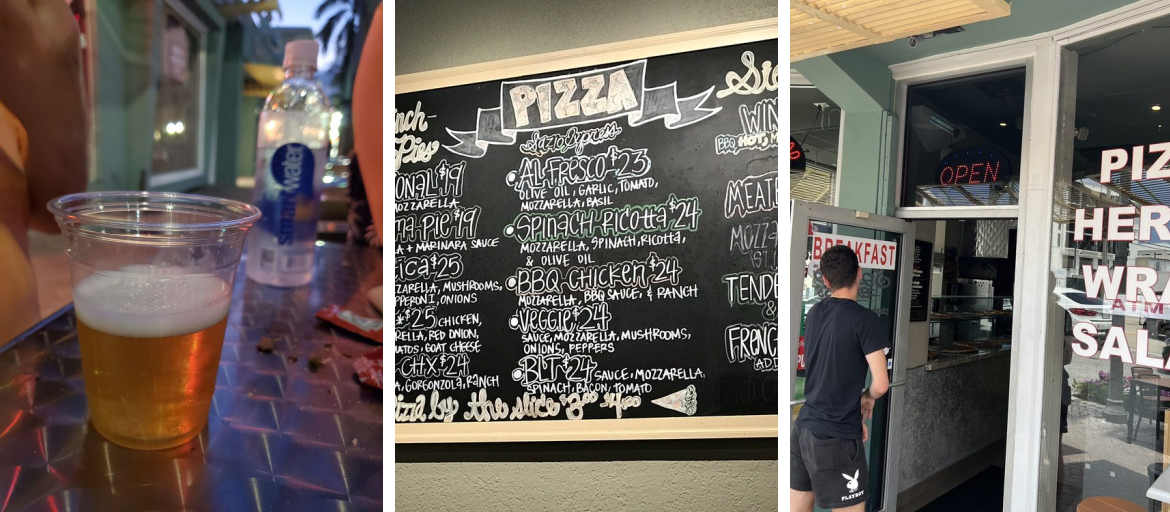 smartwater
PIZZA
AL FRESCO $23
OLIVE OIL, GARLIC, TOMATO,
MOZZARELLA, BASIL
SPINACH RICOTTA $24
MOZZARELLA, SPINACH, RICOTTA,
& OLIVE OIL
BBQ CHICKEN $24
MOZZARELLA, BBQ SAUCE, & RANCH
VEGGIE $24
SAUCE, MOZZARELLA, MUSHROOMS,
ONIONS, PEPPERS
BLT $24 SAUCE, MOZZARELLA,
SPINACH, BACON, TOMATO
by the slice
ONAL $19
MOZZARELLA
PIE $19
A + MARINARA SAUCE
ICA $25
ZZARELLA, MUSHROOMS,
PPERONI, ONIONS
$25 CHICKEN,
RELLA, RED ONION,
ATOS, GOAT CHEESE
A, GORGONZOLA, RANCH
WIN
BBQ HOT,
MEATB
TENDE
FRENC
OPEN
BREAKFAST
PIZ
HER
WRA
ATM
SAL
PLAYBOY